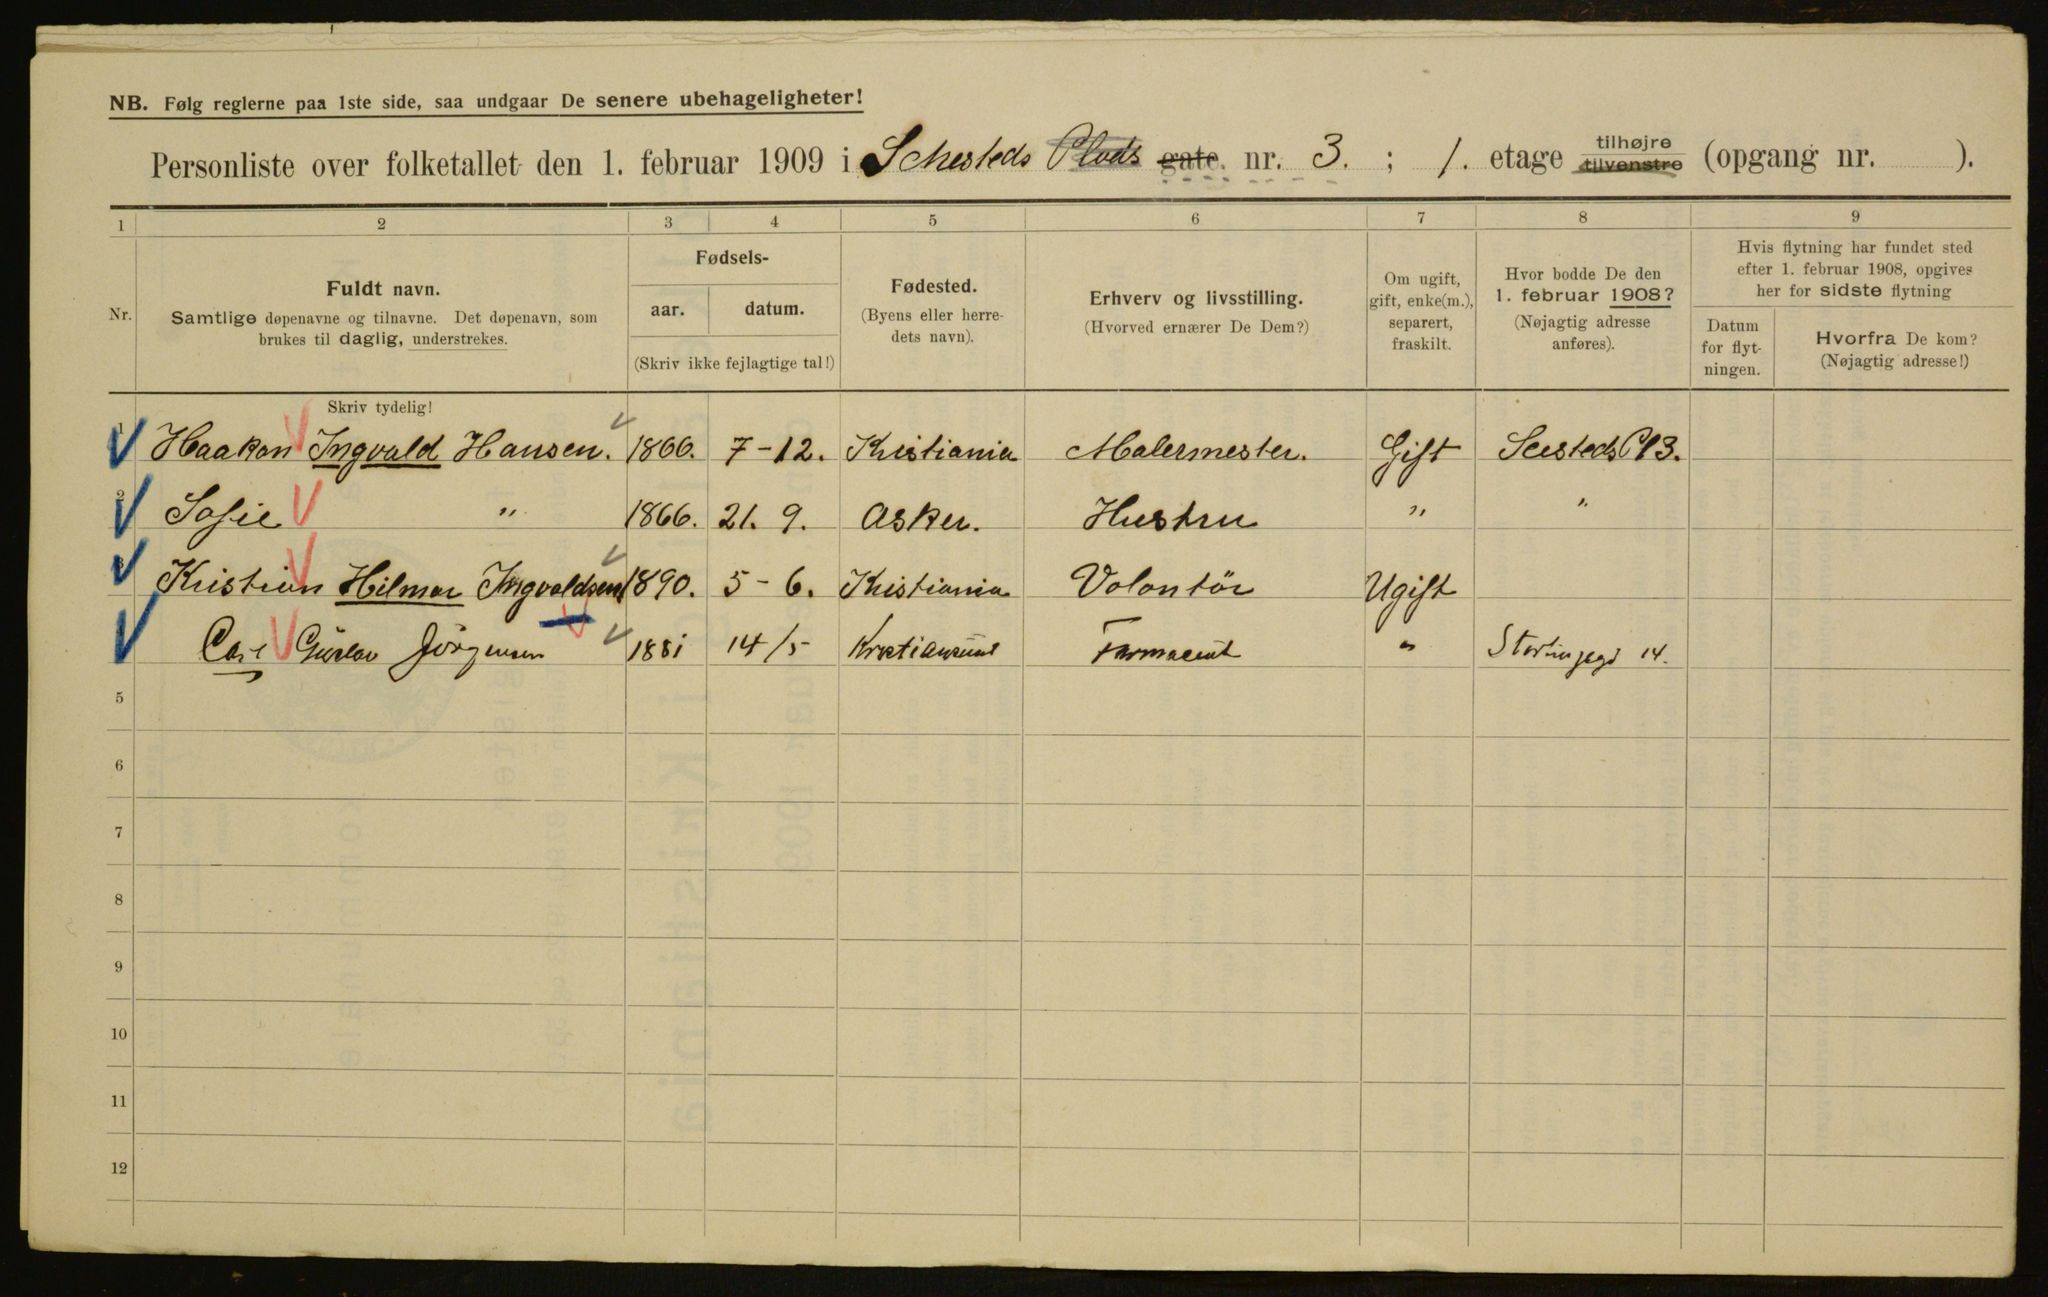 NB. Følg reglerne paa 1ste side, saa undgaar De senere ubehageligheter!
Personliste over folketallet den 1. februar 1909 i Schesteds Plads gate nr. 3. ; 1. etage tilhøjre tilvenstre (opgang nr. ).
1 2 3 4 5 6 7 8 9
Nr.
Fuldt navn.
Samtlige døpenavne og tilnavne. Det døpenavn, som
brukes til daglig, understrekes.
Fødsels-
aar. datum.
(Skriv ikke fejlagtige tal!)
Fødested.
(Byens eller herre-
dets navn).
Erhverv og livsstilling.
(Hvorved ernærer De Dem?)
Om ugift,
gift, enke(m.),
separert,
fraskilt.
Hvor bodde De den
1. februar 1908?
(Nøjagtig adresse
anføres).
Hvis flytning har fundet sted
efter 1. februar 1908, opgives
her for sidste flytning
Datum
for flyt-
ningen.
Hvorfra De kom?
(Nøjagtig adresse!)
Skriv tydelig!
1 Haakon Ingvald Hansen. 1866. 7-12. Kristiania Malermester. Gift Seesteds Pl 3.
2 Sofie " 1866. 21. 9. Asker. Hustru " "
3 Kristian Hilmar Ingvaldsen 1890. 5-6. Kristiania Volontör Ugift
Carl Gustav Jörgensen 1881 14/5 Kristiansund Farmaceut " Stortingsgd 14.
5
6
7
8
9
10
11
12